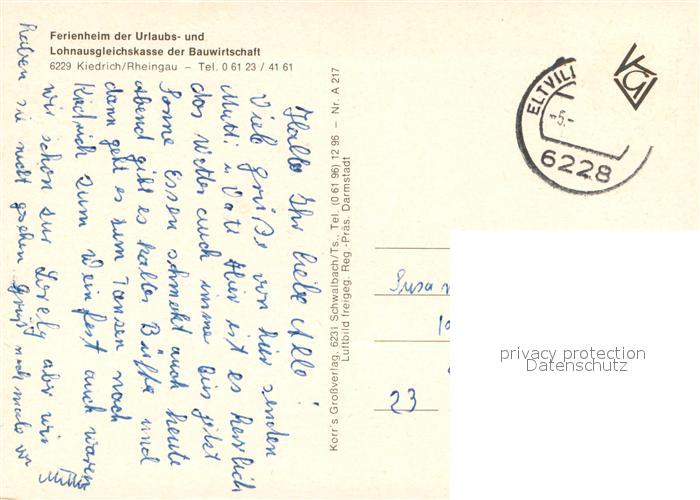 Ferienheim der Urlaubs- und
Lohnausgleichskasse der Bauwirtschaft
6229 Kiedrich/Rheingau – Tel. 0 61 23 / 41 61
Hallo Ihr liebe Alle!
Viele Grüße von hier senden
Mutti u Vati Hier ist es herrlich
das Wetter auch immer bis jetzt
Sonne Essen schmekt auch heute
abend gibt es kaltes Büffe und
dann geht es zum Tansen nach
Kiedrich zum Weinfest auch waren
wir schon zur Lorely aber wir
haben sie nicht gesehen Gruß noch mals
Korr's Großverlag, 6231 Schwalbach/Ts., Tel. (0 61 96) 12 96 – Nr. A 217
Luftbild freigeg. Reg.-Präs. Darmstadt
ELTVILL
-5.-
6228
Susa
23
privacy protection
Datenschutz